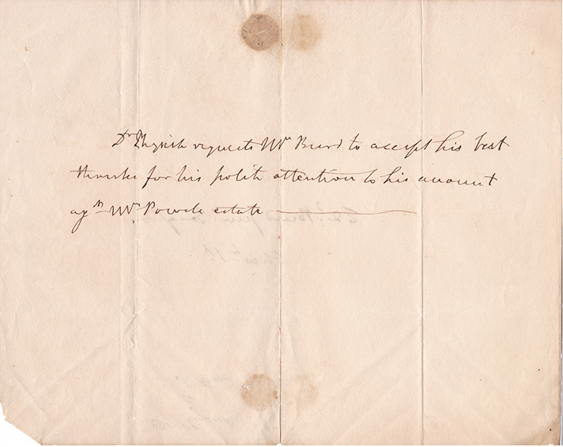 Dr Physick requests Mr Burd to accept his best
thanks for his polite attention to his account
agst Mr Powels estate